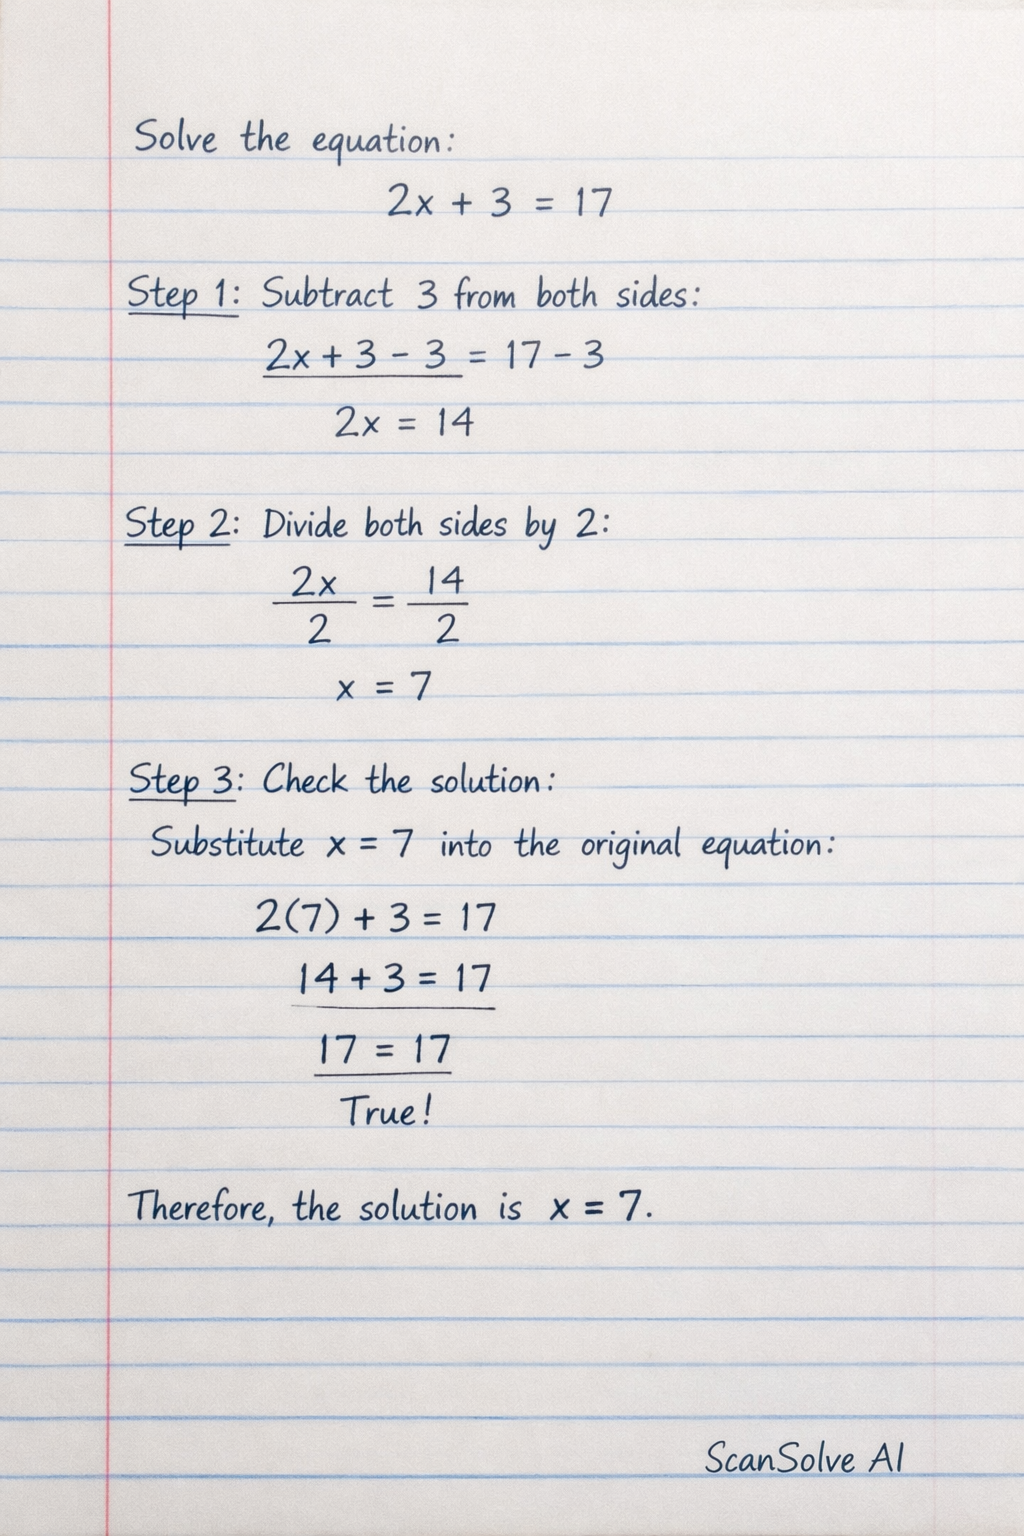 Solve the equation:
2x + 3 = 17
Step 1: Subtract 3 from both sides:
2x + 3 - 3 = 17 - 3
2x = 14
Step 2: Divide both sides by 2:
2x/2 = 14/2
x = 7
Step 3: Check the solution:
Substitute x = 7 into the original equation:
2(7) + 3 = 17
14 + 3 = 17
17 = 17
True!
Therefore, the solution is x = 7.
ScanSolve AI